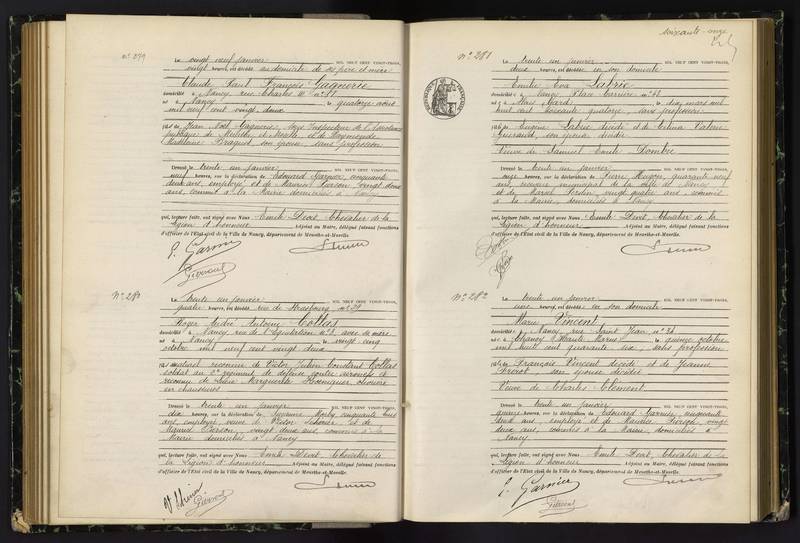 soixante-onze
n° 279
Le vingt neuf janvier MIL NEUF CENT VINGT-TROIS,
vingt heures, est décédé au domicile de ses père et mère
Claude Paul François Gagnerie
domicilié à Nancy, rue Charles III n° 87
né à Nancy le quatorze août
mil neuf cent vingt deux
fils de Jean Noël Gagnerie, Sous Inspecteur de l'Assistance
publique de Meurthe et Moselle et de Raymonde
Madeleine Braquet, son épouse, sans profession
Dressé le trente un janvier
neuf heures, sur la déclaration de Edouard Garnier, cinquante
deux ans, employé et de Maurice Pierson, vingt deux
ans, commis à la Mairie domiciliés à Nancy
qui, lecture faite, ont signé avec Nous Emile Devit, Chevalier de la
Légion d'honneur Adjoint au Maire, délégué faisant fonctions
d'officier de l'État civil de la Ville de Nancy, département de Meurthe-et-Moselle.
E. Garnier
N° 280
Le trente un janvier MIL NEUF CENT VINGT-TROIS,
quatre heures, est décédé rue de Strasbourg n° 29
Roger André Antoine Collas
domicilié à Nancy, rue de l'Equitation n° 3, avec sa mère
né à Nancy le vingt cinq
octobre mil neuf cent vingt deux
fils naturel reconnu de Victor Julien Constant Collas
soldat au régiment de défense contre aéronefs et
reconnu de Marguerite ouvrière
en chaussures
Dressé le trente un janvier
dix heures, sur la déclaration de Suzanne cinquante trois
ans, employée, veuve de Victor et de
Pierson, vingt deux ans, commis à la
Mairie domiciliés à Nancy
qui, lecture faite, ont signé avec Nous Emile Devit, Chevalier de
la Légion d'honneur Adjoint au Maire, délégué faisant fonctions
d'officier de l'État civil de la Ville de Nancy, département de Meurthe-et-Moselle.
n° 281
Le trente un janvier MIL NEUF CENT VINGT-TROIS,
deux heures, est décédée en son domicile
Emilie Eva Sabrie
domiciliée à Nancy Place Carrière n° 42
née à Alais Gard le dix mars mil
huit cent soixante quatorze, sans profession
fille de Eugène Sabrie décédé et de Valérie
son épouse décédée
Veuve de Samuel Emile Dombre
Dressé le trente un janvier
onze heures, sur la déclaration de Pierre quarante neuf
ans, receveur municipal de la ville de Nancy
et de Marcel vingt quatre ans, commis
à la Mairie, domiciliés à Nancy
qui, lecture faite, ont signé avec Nous Emile Devit, Chevalier de la
Légion d'honneur Adjoint au Maire, délégué faisant fonctions
d'officier de l'État civil de la Ville de Nancy, département de Meurthe-et-Moselle.
N° 282
Le trente un janvier MIL NEUF CENT VINGT-TROIS,
heures, est décédée en son domicile
Marie Vincent
domiciliée à Nancy, rue Saint Jean n° 34
née à Chancy Haute Marne le quinze octobre
mil huit cent quarante six, sans profession
fille de François Vincent décédé et de Jeanne
son épouse décédée
Veuve de Charles Clément
Dressé le trente un janvier
quinze heures, sur la déclaration de Edouard Garnier, cinquante
deux ans, employé et de Maurice Pierson, vingt
deux ans, commis à la Mairie, domiciliés à
Nancy
qui, lecture faite, ont signé avec Nous Emile Devit, Chevalier de la
Légion d'honneur Adjoint au Maire, délégué faisant fonctions
d'officier de l'État civil de la Ville de Nancy, département de Meurthe-et-Moselle.
E. Garnier